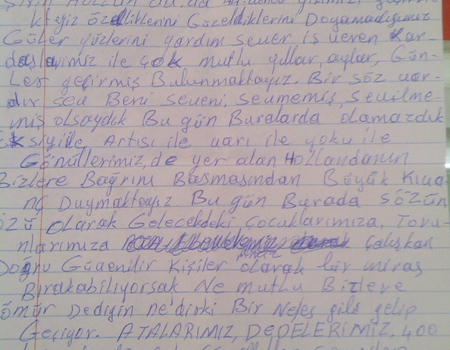 kigiz özelliklerini Güzelliklerini Doyamadığımız
Güler yüzlerini yardım sever iş veren Kar
daşlarımız ile çok mutlu yıllar, aylar, Gün-
Ler geçirmiş Bulunmaktayız. Bir söz var-
dır sev Beni seveni, sevmemiş, sevilme-
miş olsaydık Bu gün Buralarda olamazdık
Eksiği ile Artısı ile varı ile yoku ile
Gönüllerimiz,de yer alan Hollandanın
Bizlere Bağrını Basmasından Büyük Kıva-
nç Duymaktayız Bu gün Burada SÖZÜN
ÖZÜ olarak Gelecekdeki Çocuklarımıza, Toru-
nlarımıza çalışkan
Doğru Güvenilir Kişiler olarak bir miras
Bırakabiliyorsak Ne mutlu Bizlere
ömür Dediğin ne'dirki Bir Nefes gibi gelip
Geçiyor. ATALARIMIZ, DEDELERİMİZ, 400